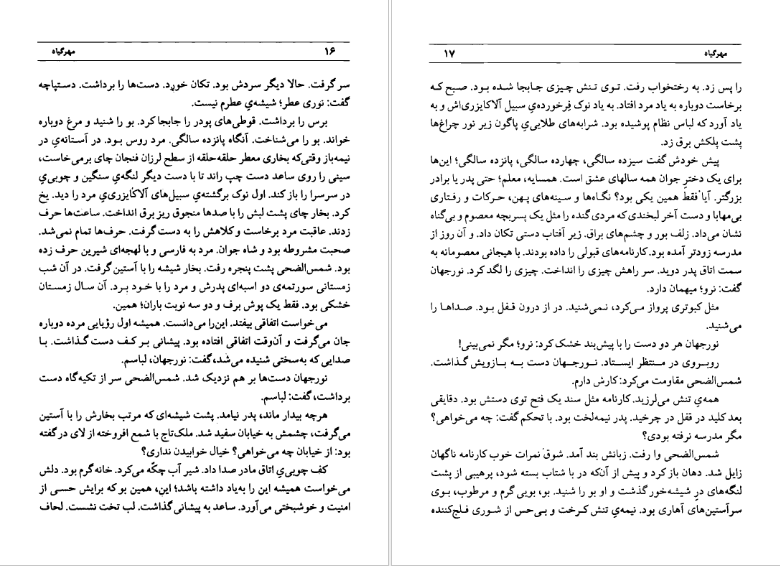 ۱۶ مهرگیاه
سر گرفت. حالا دیگر سردش بود. تکان خورد. دست‌ها را برداشت. دستپاچه
گفت: نوری عطر؛ شیشه‌ي عطرم نیست.
برس را برداشت. قوطی‌های پودر را جابجا کرد. بو را شنید و مرغ دوباره
خواند. بو را می‌شناخت. آنگاه پانزده سالگی. مرد روس بود. در آستانه‌ي در
نیمه‌باز وقتی‌که بخاری معطر حلقه‌حلقه از سطح لرزان فنجان چای برمی‌خاست،
سینی را روی ساعد دست چپ راند تا با دست دیگر لنگه‌ي سنگین و چوبی‌ي
در سرسرا را باز کند. اول نوک برگشته‌ي سبیل‌های آلاکایزری‌ي مرد را دید. یخ
کرد. بخار چای پشت لبش را با صدها منجوق ریز برق انداخت. ساعت‌ها حرف
زدند. عاقبت مرد برخاست و کلاهش را به دست گرفت. حرف‌ها تمام نمی‌شد.
صحبت مشروطه بود و شاه جوان. مرد به فارسی و با لهجه‌ای شیرین حرف زده
بود. شمس‌الضحی پشت پنجره رفت. بخار شیشه را با آستین گرفت. در آن شب
زمستانی سورتمه‌ي دو اسبه‌ای پدرش و مرد را با خود برد. آن سال زمستان
خشکی بود. فقط یک پوش برف و دو سه نوبت باران؛ همین.
می‌خواست اتفاقی بیفتد. این‌را می‌دانست. همیشه اول رؤیایی مرده دوباره
جان می‌گرفت و آن‌وقت اتفاقی افتاده بود. پیشانی بر کف دست گذاشت. با
صدایی که به‌سختی شنیده می‌شد، گفت: نورجهان، لباسم.
نورجهان دست‌ها بر هم نزدیک شد. شمس‌الضحی سر از تکیه‌گاه دست
برداشت، گفت: لباسم.
هرچه بیدار ماند، پدر نیامد. پشت شیشه‌ای که مرتب بخارش را با آستین
می‌گرفت، چشمش به خیابان سفید شد. ملک‌تاج با شمع افروخته از لای در گفته
بود: از خیابان چه می‌خواهی؟ خیال خوابیدن نداری؟
کف چوبی‌ي اتاق مادر صدا داد. شیر آب چکّه می‌کرد. خانه گرم بود. دلش
می‌خواست همیشه این را به‌یاد داشته باشد؛ این، همین بو که برایش حسی از
امنیت و خوشبختی می‌آورد. ساعد به پیشانی گذاشت. لب تخت نشست. لحاف
مهرگیاه ۱۷
را پس زد. به رختخواب رفت. توی تنش چیزی جابجا شده بود. صبح که
برخاست دوباره به یاد مرد افتاد. به یاد نوک فِرخورده‌ي سبیل آلاکایزری‌اش و به
یاد آورد که لباس نظام پوشیده بود. شرابه‌های طلایی‌ي پاگون زیر نور چراغ‌ها
پشت پلکش برق زد.
پیش خودش گفت سیزده سالگی، چهارده سالگی، پانزده سالگی؛ این‌ها
برای یک دختر جوان همه سالهای عشق است. همسایه، معلم؛ حتی پدر یا برادر
بزرگتر. آیا فقط همین یکی بود؟ نگاه‌ها و سینه‌های پهن، حرکات و رفتاری
بی‌مهابا و دست آخر لبخندی که مردی گنده را مثل یک پسربچه معصوم و بی‌گناه
نشان می‌داد. زلف بور و چشم‌های براق. زیر آفتاب دستی تکان داد. و آن روز از
مدرسه زودتر آمده بود. کارنامه‌های قبولی را داده بودند. با هیجانی معصومانه به
سمت اتاق پدر دوید. سر راهش چیزی را انداخت. چیزی را لگد کرد. نورجهان
گفت: نرو؛ میهمان دارد.
مثل کبوتری پرواز می‌کرد، نمی‌شنید. در از درون قفل بود. صداها را
می‌شنید.
نورجهان هر دو دست را با پیش‌بند خشک کرد: نرو؛ مگر نمی‌بینی!
روبروی در منتظر ایستاد. نورجهان دست به بازویش گذاشت.
شمس‌الضحی مقاومت می‌کرد: کارش دارم.
همه‌ي تنش می‌لرزید. کارنامه مثل سند یک فتح توی دستش بود. دقایقی
بعد کلید در قفل در چرخید. پدر نیمه‌لخت بود. با تحکم گفت: چه می‌خواهی؟
مگر مدرسه نرفته بودی؟
شمس‌الضحی وا رفت. زبانش بند آمد. شوق نمرات خوب کارنامه ناگهان
زایل شد. دهان باز کرد و پیش از آن‌که در با شتاب بسته شود، پرهیبی از پشت
لنگه‌های در شیشه‌خور گذشت و او بو را شنید. بو، بویی گرم و مرطوب، بوی
سرآستین‌های آهاری بود. نیمه‌ي تنش کرخت و بی‌حس از شوری فلج‌کننده